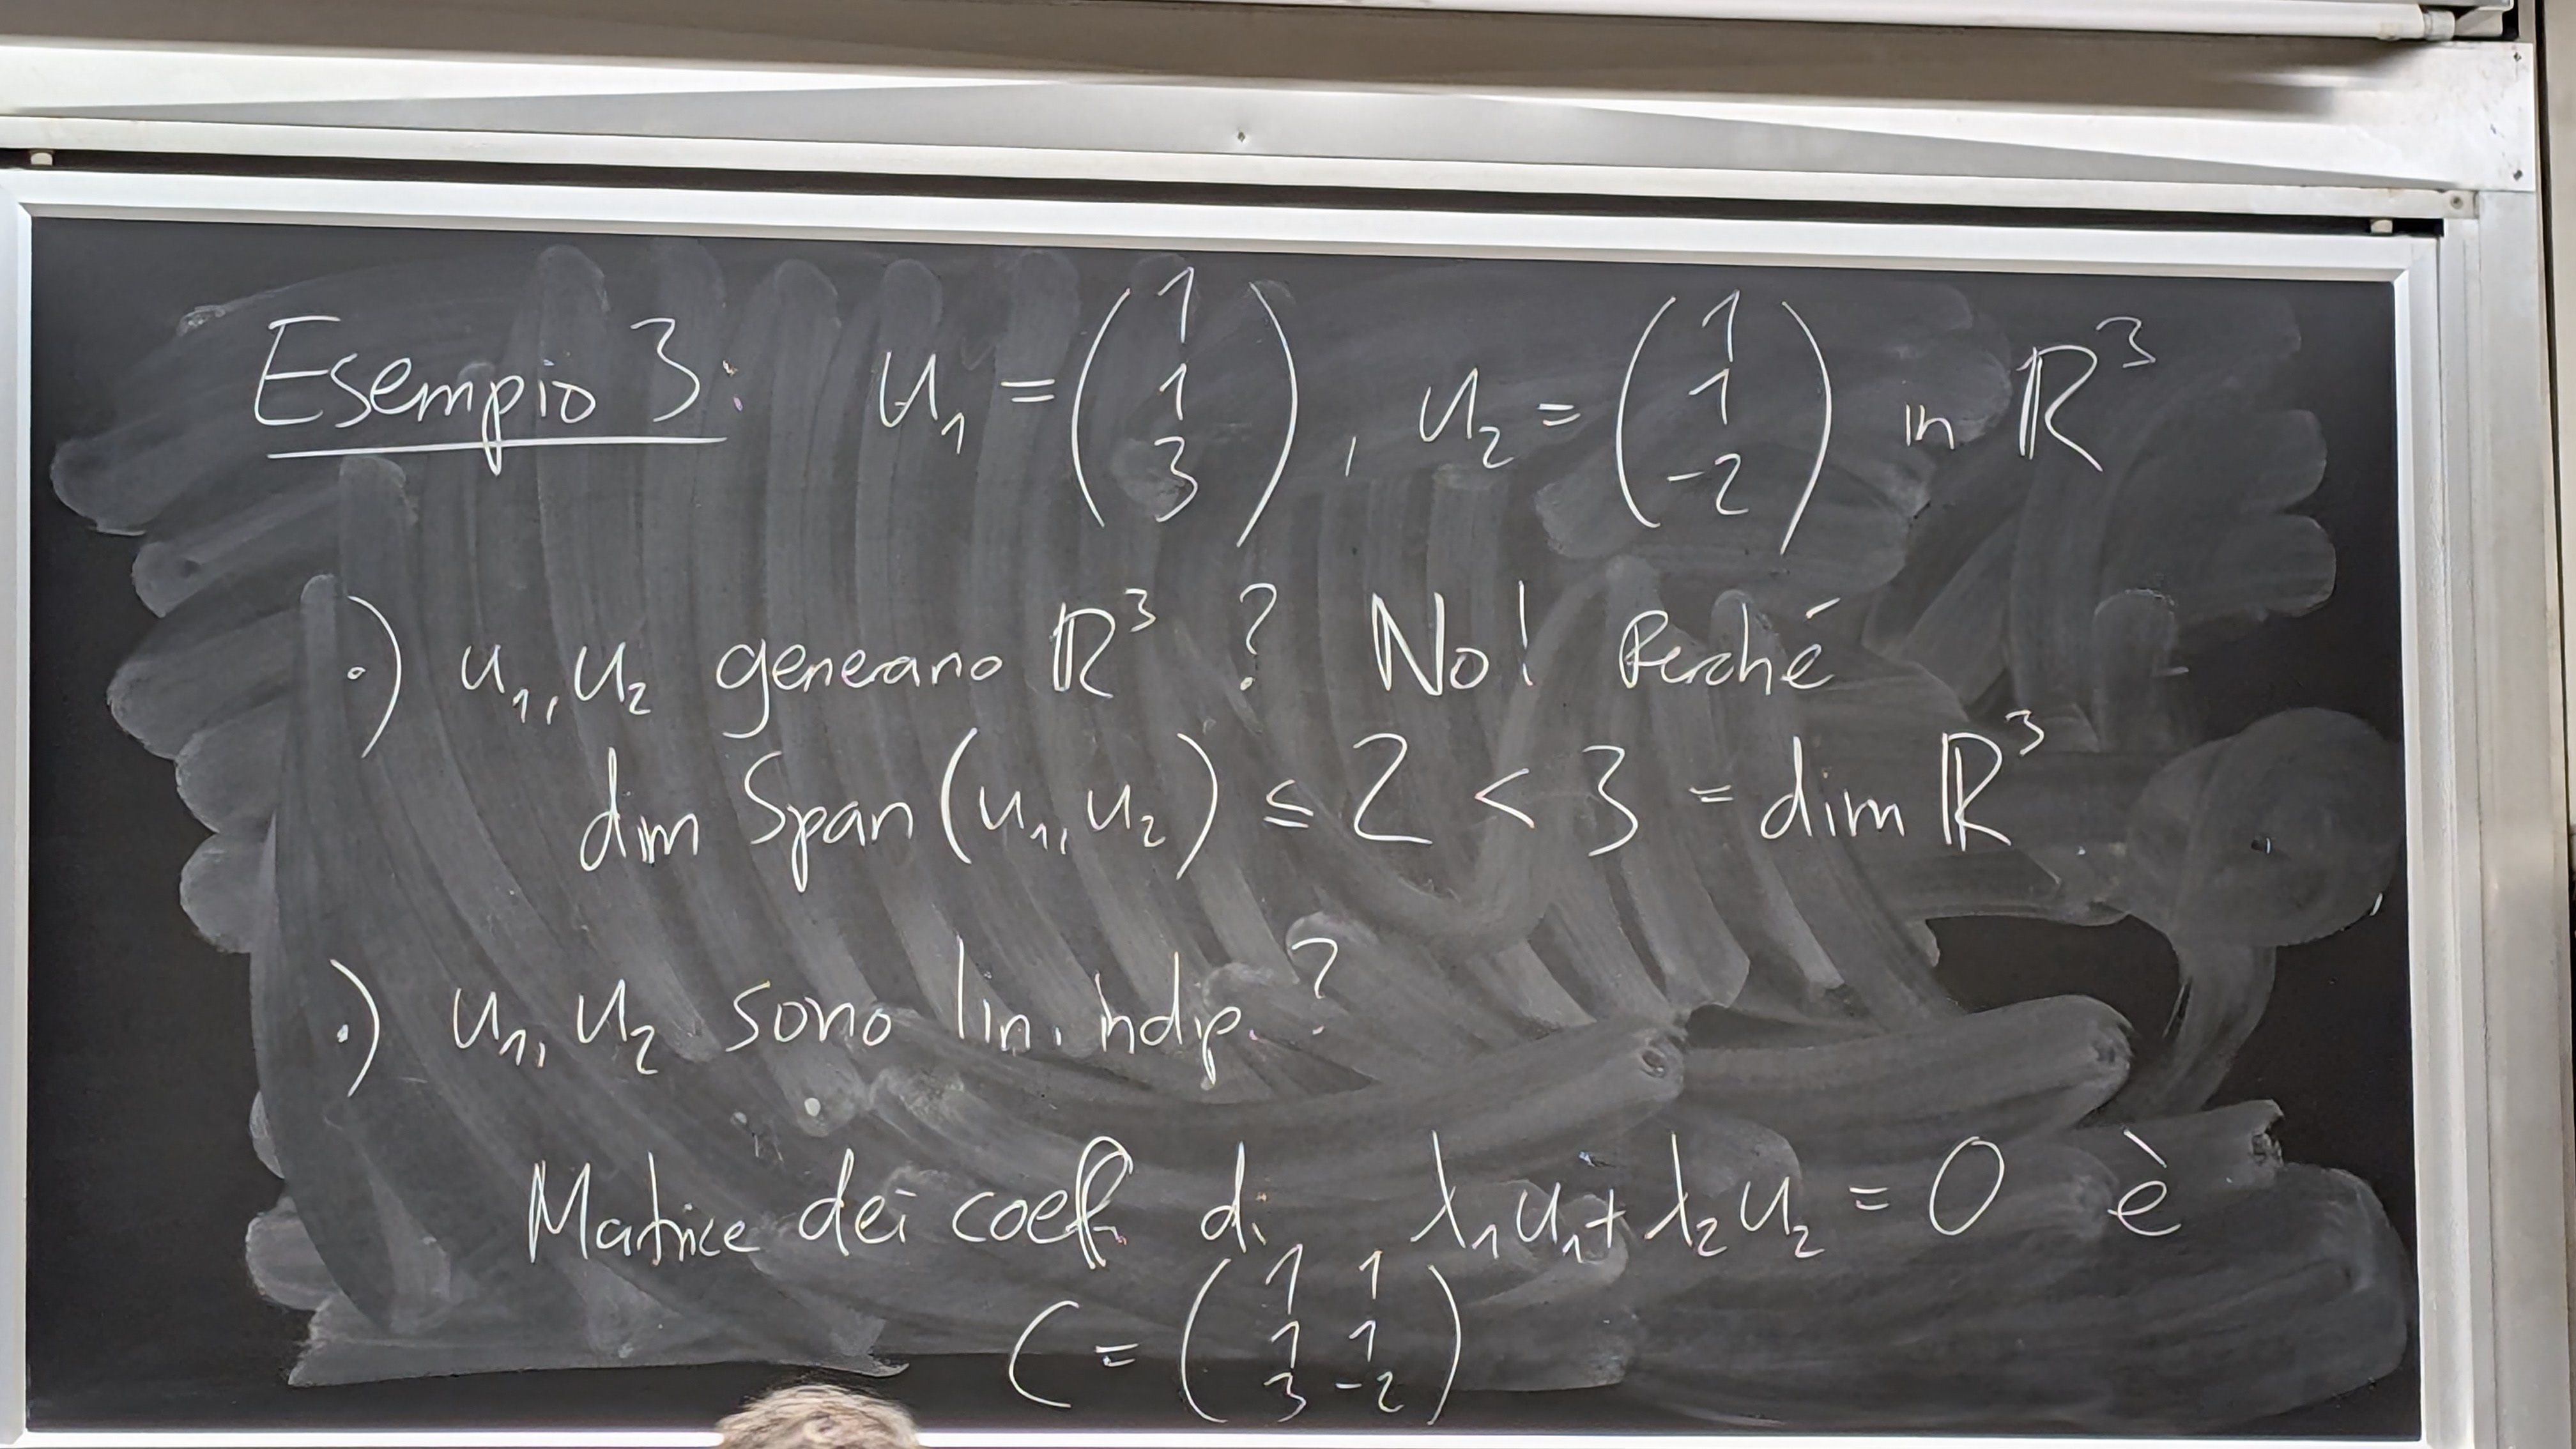 Esempio 3: u₁ = (1 1 3), u₂ = (1 1 -2) in ℝ³
·) u₁, u₂ generano ℝ³ ? No! Perché
dim Span(u₁, u₂) ≤ 2 < 3 = dim ℝ³.
·) u₁, u₂ sono lin. indip.?
Matrice dei coeff. di λ₁u₁ + λ₂u₂ = 0 è
C = (1 1
1 1
3 -2)